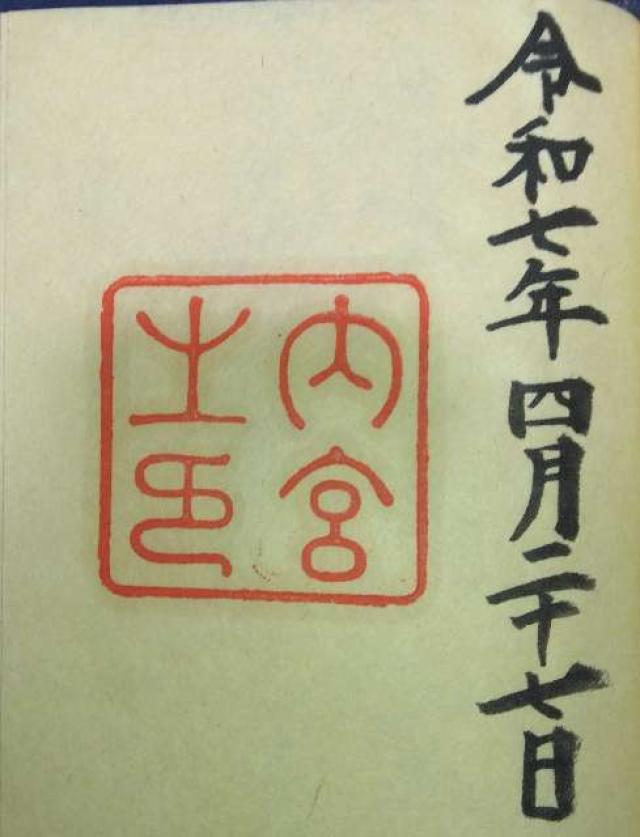 令和七年四月二十七日
内宮
之印